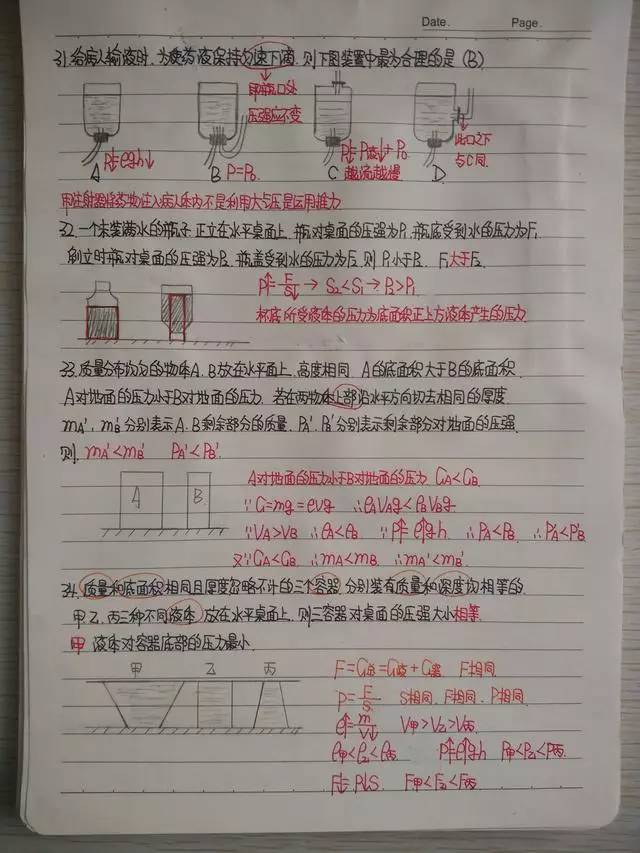 Date. Page.
31. 给病人输液时，为使药液保持匀速下滴，则下图装置中最为合理的是 (B)
即瓶口处
压强应不变
A B C D
P↓=ρgh↓ P=P₀ P↓=P液↓+P₀ 此口之下
越流越慢 与C同
用注射器将药物注入病人体内不是利用大气压是运用推力
32. 一个未装满水的瓶子，正立在水平桌面上，瓶对桌面的压强为P₁，瓶底受到水的压力为F₁
倒立时瓶对桌面的压强为P₂，瓶盖受到水的压力为F₂，则 P₁小于P₂ F₁大于F₂
P↑=F/S↓ → S₂<S₁ → P₂>P₁
杯底所受液体的压力为底面积正上方液体产生的压力
33. 质量分布均匀的物体A、B放在水平面上，高度相同，A的底面积大于B的底面积
A对地面的压力小于B对地面的压力，若在两物体上部沿水平方向切去相同的厚度
mA′、mB′分别表示A、B剩余部分的质量，PA′、PB′分别表示剩余部分对地面的压强
则 mA′<mB′ PA′<PB′
A B
A对地面的压力小于B对地面的压力 GA<GB
∵G=mg=ρvg ∴ρAVAg<ρBVBg
∵VA>VB ∴ρA<ρB ∵P↑=ρ↑gh ∴PA<PB ∴PA′<PB′
又∵GA<GB ∴mA<mB ∴mA′<mB′
34. 质量和底面积相同且厚度忽略不计的三个容器，分别装有质量和深度均相等的
甲、乙、丙三种不同液体，放在水平桌面上，则三容器对桌面的压强大小相等
甲液体对容器底部的压力最小
甲 乙 丙
F=G总=G液+G器 F相同
P=F/S S相同，F相同，P相同
ρ↑=m/V↓ V甲>V乙>V丙
ρ甲<ρ乙<ρ丙 P↑=ρ↑gh P甲<P乙<P丙
F↓=P↓S F甲<F乙<F丙